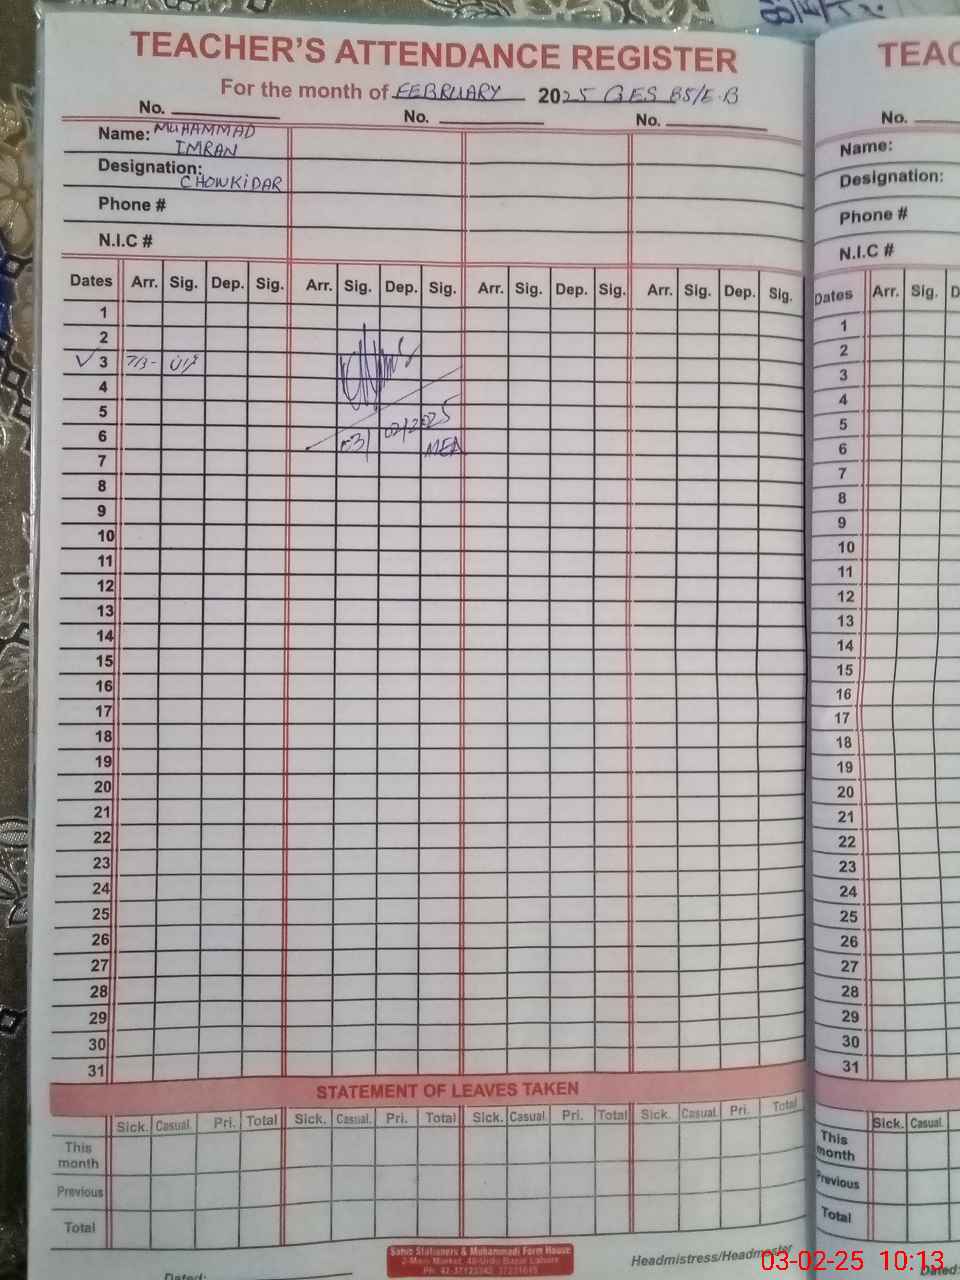 TEACHER'S ATTENDANCE REGISTER
For the month of FEBRUARY 2025 GES 85/E.B
No. No. No.
Name: MUHAMMAD
IMRAN
Designation:
CHOWKIDAR
Phone #
N.I.C #
Dates Arr. Sig. Dep. Sig. Arr. Sig. Dep. Sig. Arr. Sig. Dep. Sig. Arr. Sig. Dep. Sig.
1
2
✓ 3
4
5
6
03/02/2025
MEA
7
8
9
10
11
12
13
14
15
16
17
18
19
20
21
22
23
24
25
26
27
28
29
30
31
STATEMENT OF LEAVES TAKEN
Sick. Casual. Pri. Total Sick. Casual. Pri. Total Sick. Casual. Pri. Total Sick. Casual. Pri. Total
This
month
Previous
Total
Stationers & Muhammadi Form House
Urdu Bazar Lahore
Headmistress/Headmaster
Dated:
TEAC
No.
Name:
Designation:
Phone #
N.I.C #
Dates Arr. Sig. D
1
2
3
4
5
6
7
8
9
10
11
12
13
14
15
16
17
18
19
20
21
22
23
24
25
26
27
28
29
30
31
Sick. Casual.
This
month
Previous
Total
Dated:
03-02-25 10:13